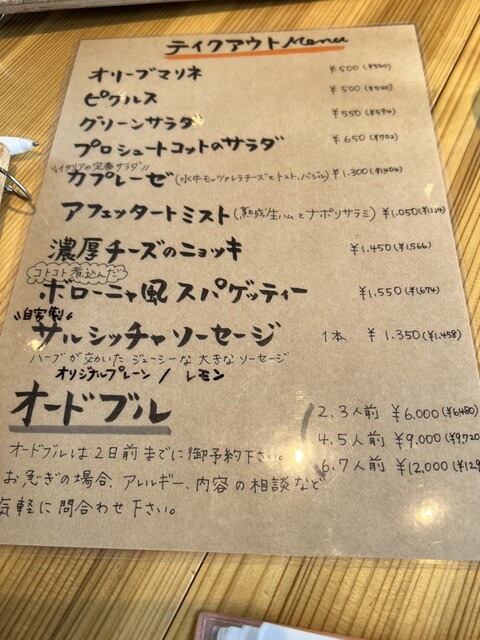 テイクアウトMenu
オリーブマリネ ¥500(¥540)
ピクルス ¥500(¥540)
グリーンサラダ ¥550(¥594)
プロシュートコットのサラダ ¥650(¥702)
\\イタリアの定番サラダ//
カプレーゼ(水牛モッツァレラチーズとトマト、バジル) ¥1.300(¥1404)
アフェッタートミスト(熟成生ハムとナポリサラミ) ¥1.050(¥1134)
濃厚チーズのニョッキ ¥1.450(¥1,566)
コトコト煮込んだ
ボローニャ風スパゲッティー ¥1.550(¥1,674)
\\自家製//
サルシッチャソーセージ 1本 ¥1.350(¥1.458)
ハーブが効いたジューシーな大きなソーセージ
オリジナルプレーン / レモン
オードブル
2.3人前 ¥6,000(¥6480)
4.5人前 ¥9,000(¥9,720
6.7人前 ¥12,000(¥129
オードブルは2日前までに御予約下さい。
お急ぎの場合、アレルギー、内容の相談など
気軽に問合わせ下さい。